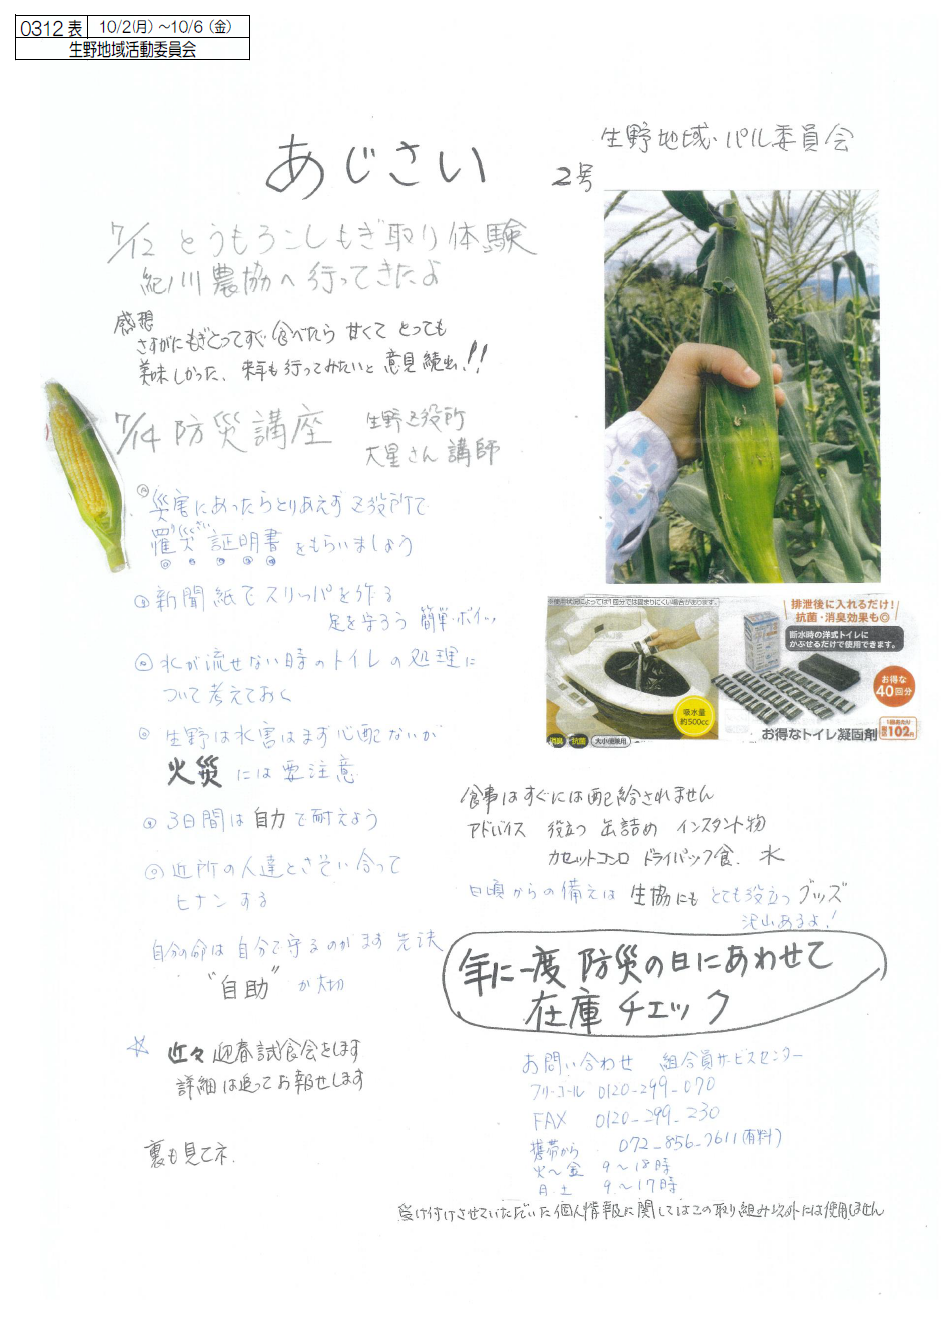 0312 表 10/2(月)~10/6(金)
生野地域活動委員会
生野地域パル委員会
あじさい 2号
7/12 とうもろこしもぎ取り体験
紀ノ川農協へ行ってきたよ
感想
さすがにもぎとってすぐ食べたら 甘くて とっても
美味しかった、来年も行ってみたいと意見続出!!
7/14 防災講座
生野区役所
大星さん 講師
◎災害にあったらとりあえず区役所で
罹災証明書をもらいましょう
◎新聞紙でスリッパを作る
足を守ろう 簡単・ポイッ
◎水が流せない時のトイレの処理に
ついて考えておく
◎生野は水害はまず心配ないが
火災には要注意
◎3日間は自力で耐えよう
◎近所の人達とさそい合って
ヒナンする
自分の命は自分で守るのがまず先決
"自助" が大切
☆ 近々 迎春試食会をします
詳細は追ってお報せします
裏も見てネ.
※使用状況によっては1回分では固まりにくい場合があります。
吸水量
約500cc
消臭 抗菌 大小便兼用
排泄後に入れるだけ!
抗菌・消臭効果も◎
断水時の洋式トイレに
かぶせるだけで使用できます。
お得な
40回分
お得なトイレ凝固剤
1回あたり
102円
食事はすぐには配給されません
アドバイス 役立つ 缶詰め インスタント物
カセットコンロ ドライパック食. 水
日頃からの備えは 生協にも とても役立つ グッズ
沢山あるよ!
年に一度 防災の日にあわせて
在庫チェック
お問い合わせ 組合員サービスセンター
フリーコール 0120-299-070
FAX 0120-299-230
携帯から 072-856-7611(有料)
火~金 9~18時
月.土 9~17時
受け付けさせていただいた個人情報に関してはこの取り組み以外には使用しません